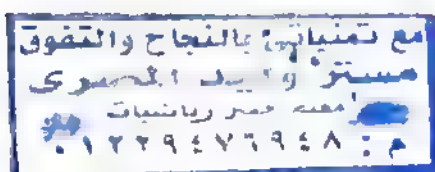 مع تمنياتى بالنجاح والتفوق
مستر وليد المصرى
مصر رياضيات
م : ٠١٢٢٩٤٧٦٩٤٨